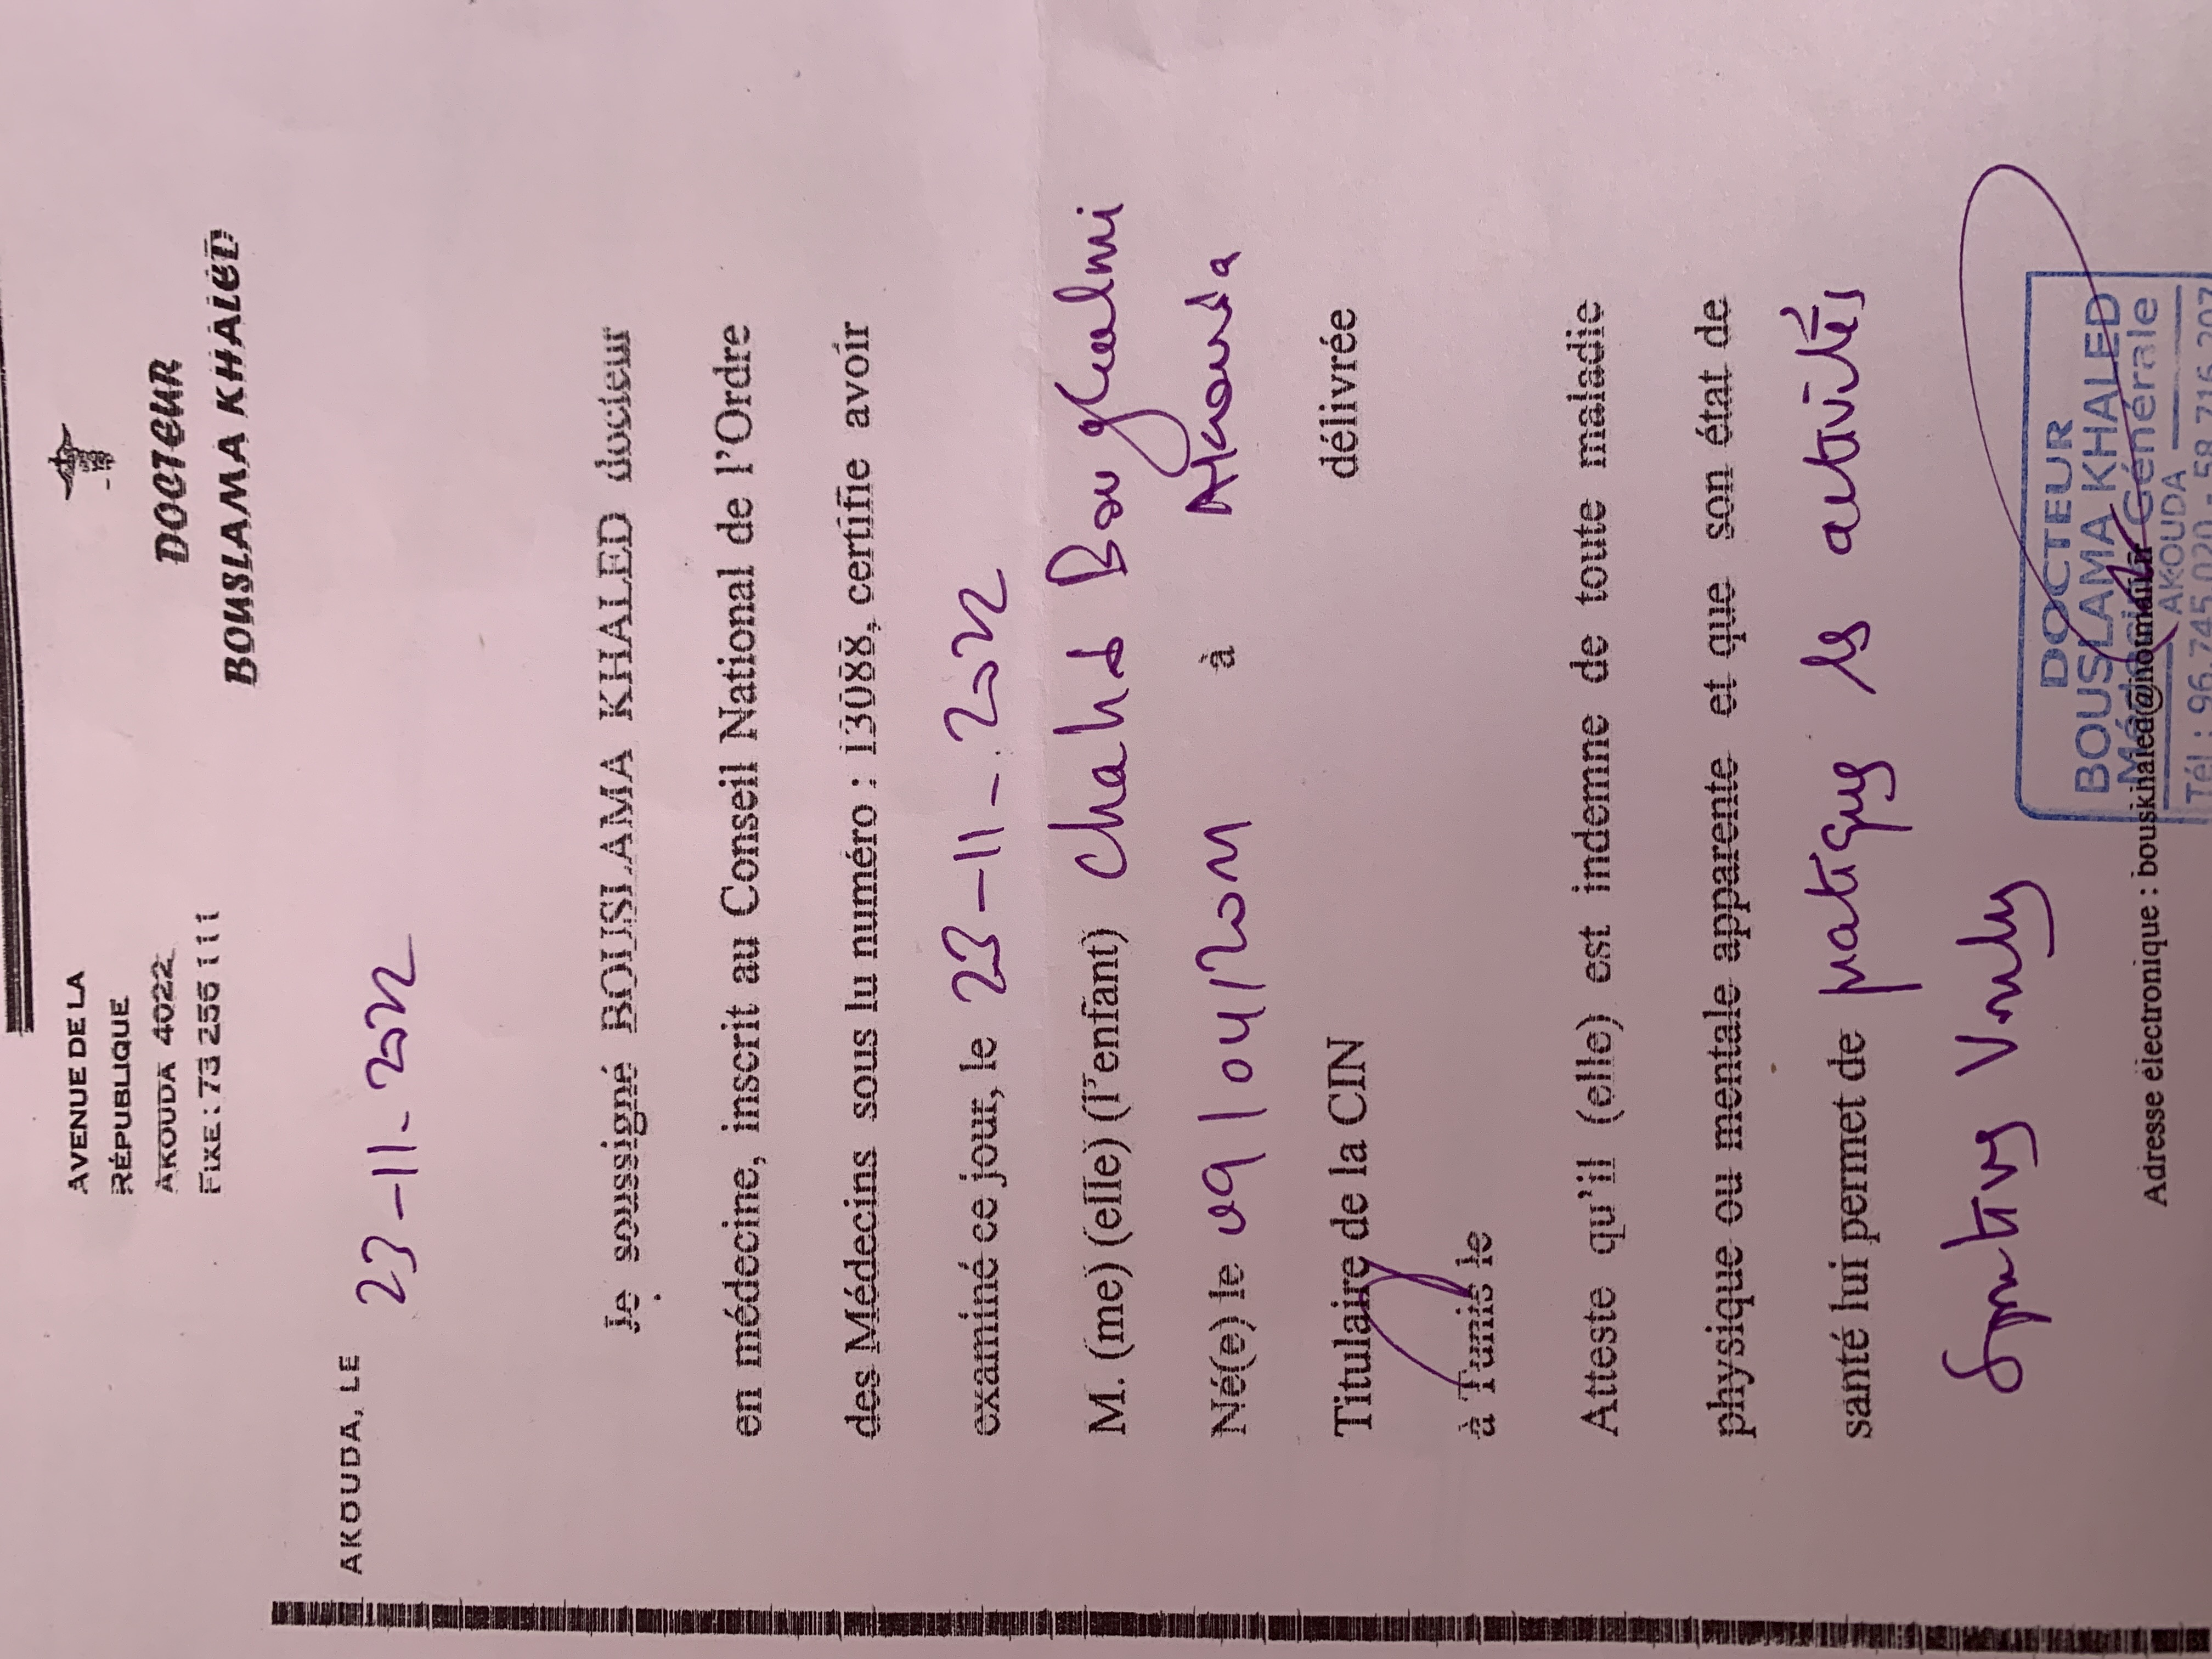 AVENUE DE LA
RÉPUBLIQUE
AKOUDA 4022
FIXE : 73 256 111
DOCTEUR
BOUSLAMA KHALED
AKOUDA, LE
23-11-2022
Je soussigné BOUSLAMA KHALED docteur
en médecine, inscrit au Conseil National de l'Ordre
des Médecins sous lu numéro : 13088, certifie avoir
examiné ce jour, le 23-11-2022
M. (me) (elle) (l'enfant) Chahd Boughalmi
Né(e) le 09/04/2011 à Akouda
Titulaire de la CIN délivrée
à Tunis le
Atteste qu'il (elle) est indemne de toute maladie
physique ou mentale apparente et que son état de
santé lui permet de pratiquer les activités
sportives
DOCTEUR
BOUSLAMA KHALED
Médecin Générale
AKOUDA
Tél : 96.745.020 - 58.716.207
Adresse électronique : bouskhaled@